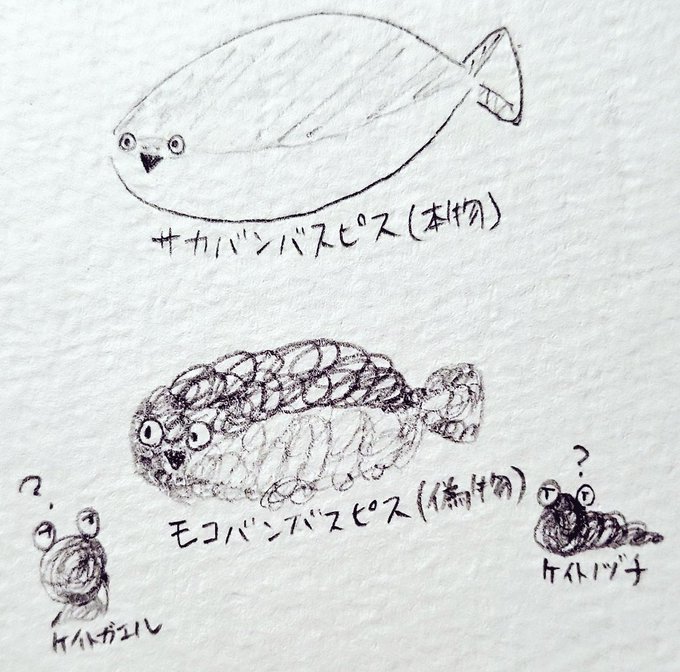 サカバンバスピス(本物)
モコバンバスピス(偽物)
?
?
ケイトガエル
ケイトノヅチ